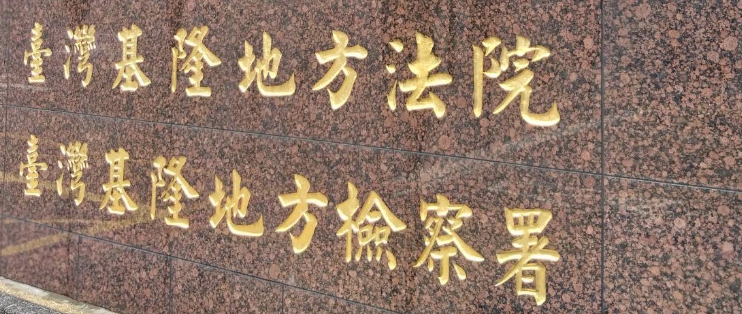 臺灣基隆地方法院
臺灣基隆地方檢察署